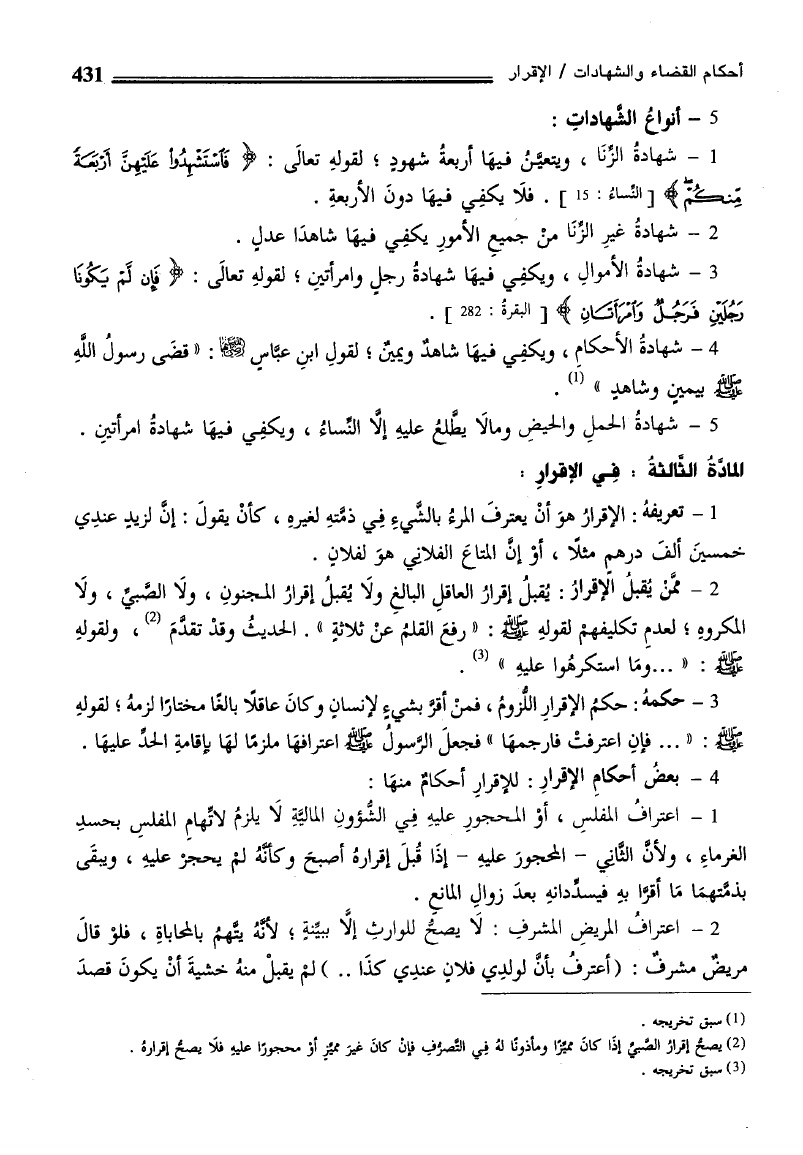 أحكام القضاء والشهادات / الإقرار 431
5 – أنواعُ الشَّهاداتِ :
1 – شهادةُ الزِّنَا ، ويتعيَّنُ فيهَا أربعةُ شهودٍ ؛ لقولهِ تعالَى : ﴿ فَٱسْتَشْهِدُوا۟ عَلَيْهِنَّ أَرْبَعَةً
مِّنكُمْ ﴾ [ النِّساءُ : 15 ] . فلَا يكفِي فيهَا دونَ الأربعةِ .
2 – شهادةُ غيرِ الزِّنَا منْ جميعِ الأمورِ يكفِي فيهَا شاهدَا عدلٍ .
3 – شهادةُ الأموالِ ، ويكفِي فيهَا شهادةُ رجلٍ وامرأتينِ ؛ لقولهِ تعالَى : ﴿ فَإِن لَّمْ يَكُونَا
رَجُلَيْنِ فَرَجُلٌ وَٱمْرَأَتَانِ ﴾ [ البقرةُ : 282 ] .
4 – شهادةُ الأحكامِ ، ويكفِي فيهَا شاهدٌ ويمينٌ ؛ لقولِ ابنِ عبَّاسٍ رضي الله عنهما : « قضَى رسولُ اللَّهِ
ﷺ بيمينٍ وشاهدٍ » (1) .
5 – شهادةُ الحملِ والحيضِ ومالَا يطَّلعُ عليهِ إلَّا النِّساءُ ، ويكفِي فيهَا شهادةُ امرأتينِ .
المادَّةُ الثَّالثةُ : فِي الإقرارِ :
1 – تعريفهُ : الإقرارُ هوَ أنْ يعترفَ المرءُ بالشَّيءِ فِي ذمَّتهِ لغيرهِ ، كأنْ يقولَ : إنَّ لزيدٍ عندِي
خمسينَ ألفَ درهمٍ مثلًا ، أوْ إنَّ المتاعَ الفلانِي هوَ لفلانٍ .
2 – ممَّنْ يُقبلُ الإقرارُ : يُقبلُ إقرارُ العاقلِ البالغِ ولَا يُقبلُ إقرارُ المجنونِ ، ولَا الصَّبيِّ ، ولَا
المكروهِ ؛ لعدمِ تكليفهمْ لقولهِ ﷺ : « رفعَ القلمُ عنْ ثلاثةٍ » . الحديثُ وقدْ تقدَّمَ (2) ، ولقولهِ
ﷺ : « ...ومَا استكرهُوا عليهِ » (3) .
3 – حكمهُ : حكمُ الإقرارِ اللُّزومُ ، فمنْ أقرَّ بشيءٍ لإنسانٍ وكانَ عاقلًا بالغًا مختارًا لزمهُ ؛ لقولهِ
ﷺ : « ... فإنِ اعترفتْ فارجمهَا » فجعلَ الرَّسولُ ﷺ اعترافهَا ملزمًا لهَا بإقامةِ الحدِّ عليهَا .
4 – بعضُ أحكامِ الإقرارِ : للإقرارِ أحكامٌ منهَا :
1 – اعترافُ المفلسِ ، أوْ المحجورِ عليهِ فِي الشُّؤونِ الماليَّةِ لَا يلزمُ لاتِّهامِ المفلسِ بحسدِ
الغرماءِ ، ولأنَّ الثَّانِي – المحجورَ عليهِ – إذَا قُبلَ إقرارهُ أصبحَ وكأنَّهُ لمْ يحجرْ عليهِ ، ويبقَى
بذمَّتهمَا مَا أقرَّا بهِ فيسدِّدانهِ بعدَ زوالِ المانعِ .
2 – اعترافُ المريضِ المشرفِ : لَا يصحُّ للوارثِ إلَّا ببيِّنةٍ ؛ لأنَّهُ يتَّهمُ بالمحاباةِ ، فلوْ قالَ
مريضٌ مشرفٌ : ( أعترفُ بأنَّ لولدِي فلانٍ عندِي كذَا .. ) لمْ يقبلْ منهُ خشيةَ أنْ يكونَ قصدَ
(1) سبق تخريجه .
(2) يصحُّ إقرارُ الصَّبيِّ إذَا كانَ مميِّزًا ومأذونًا لهُ فِي التَّصرُّفِ فإنْ كانَ غيرَ مميِّزٍ أوْ محجورًا عليهِ فلَا يصحُّ إقرارهُ .
(3) سبق تخريجه .